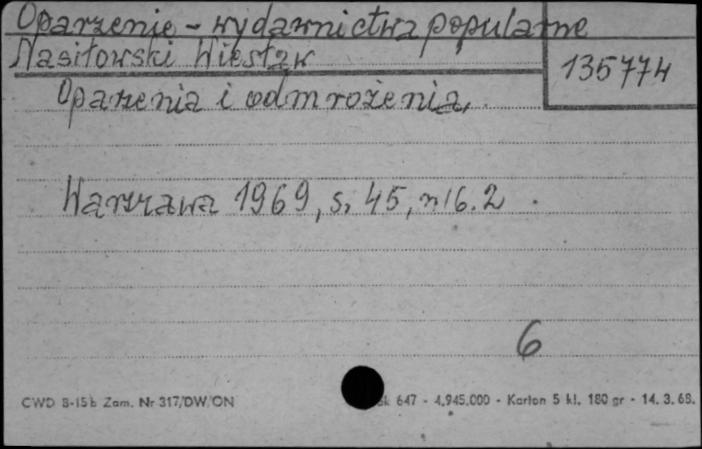 Oparzenie - wydawnictwa popularne
Nasiłowski Wiesław
135774
Oparzenia i odmrożenia,
Warszawa 1969, s. 45, n16.2
6
CWD B-15b Zam. Nr 317/DW/ON
647 - 4.945.000 - Karton 5 kl. 180 gr - 14. 3. 68.